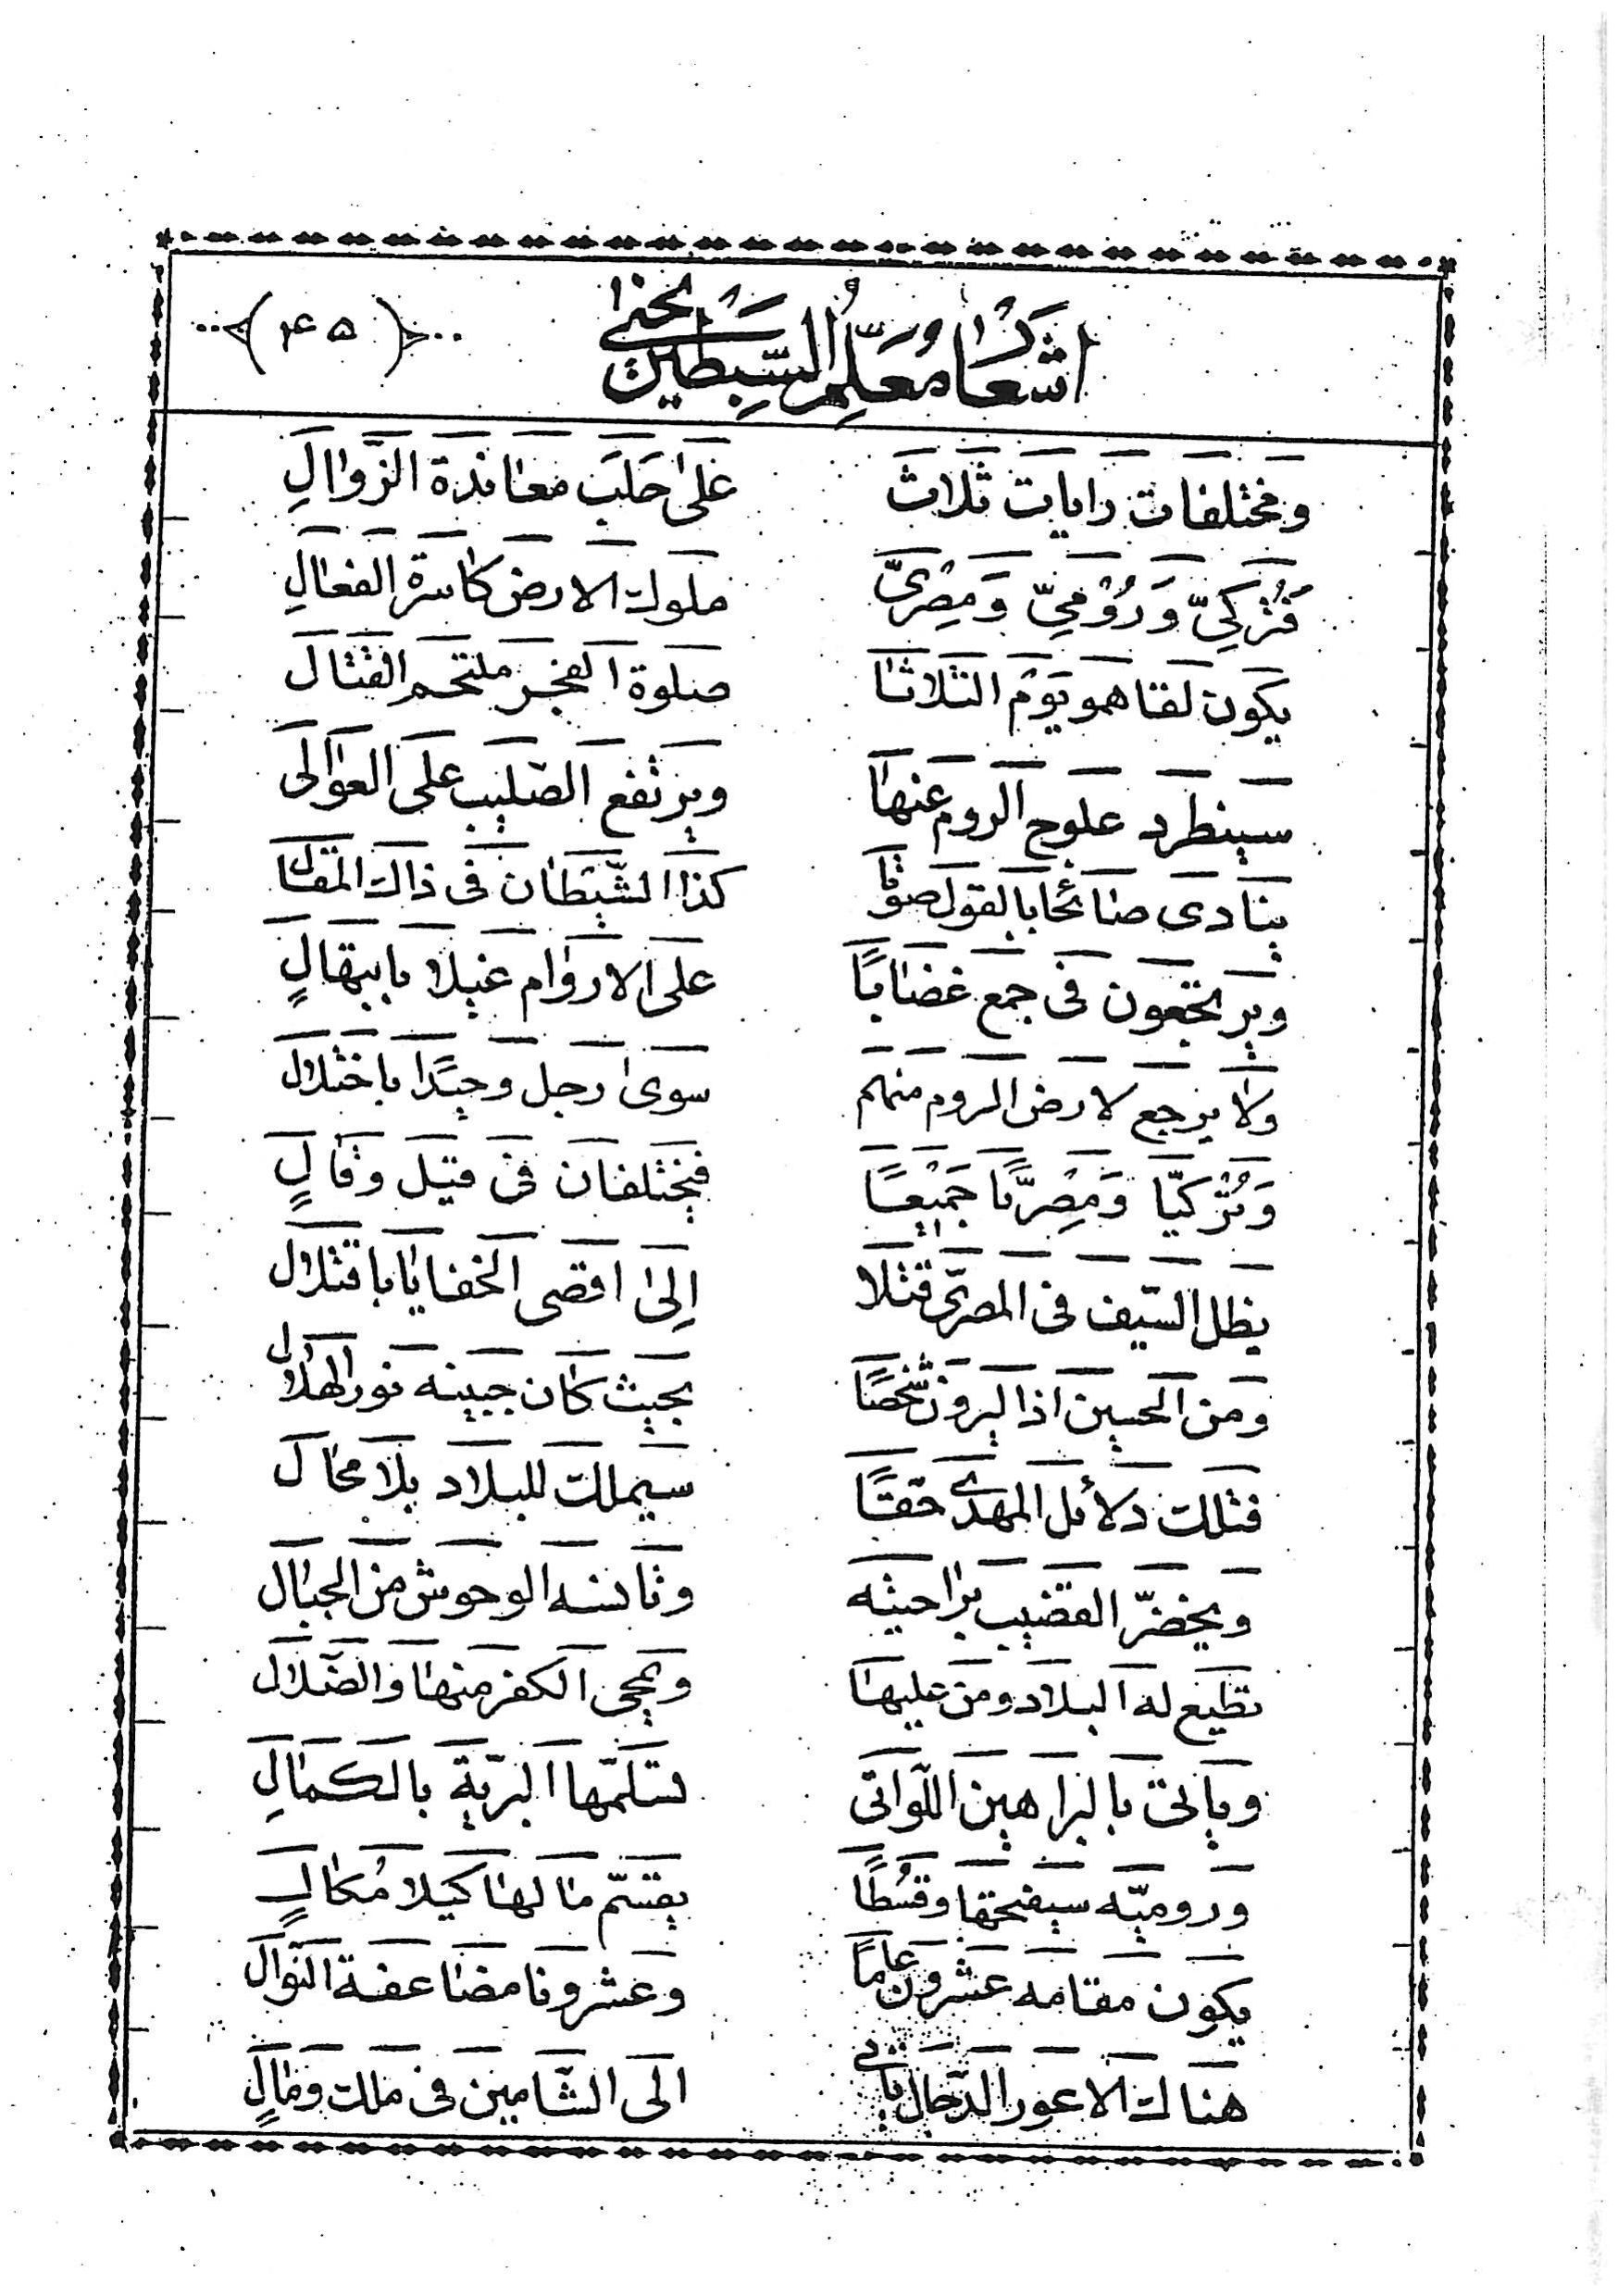 اشعار معلم السبطين
(۴۵)
ومختلفات رايات ثلاث على حلب معاندة الزوالِ
فتُركيّ ورُوْمِيّ ومِصْرىّ ملوك الارض كاسرة الفعالِ
يكون لقاهمو يَوْم الثلاثا صلوة الفجر ملتحم القتال
سينطرد علوج الروم عنها ويرتفع الصليب على العوالى
ينادى صائحا بالقول صوتا كذا الشيطان فى ذاك المقال
ويرتجعون فى جمع غضابًا على الاروام غيلا بابتهالٍ
ولا يرجع لارض الروم منهم سوى رجل وحيدًا باختلال
وَتُرْكيّا وَمِصْريًّا جَمِيْعًا فيختلفان فى قيل وقالٍ
يظل السّيف فى المصرىّ قتلا اِلى اقصى الخفايا باقتلال
ومن الحسين اذا يرون شخصًا بحيث كان جبينه نور الهلال
فتلك دلائل المهدى حقًّا سيملك للبلاد بلا محال
ويخضرّ القضيب براحيته وتانسه الوحوش من الجبال
تطيع له البلاد ومن عليها ويمحى الكفر منها والضّلال
وياتى بالبراهين اللّواتى تسلّمها البريّة بالكمالِ
وروميّه سيفتحها وقسُطًا يقسّم مالها كيلا مُكالٍ
يكون مقامه عشرون عامًا وعشرونا مضاعفة النّوال
هنالك الاعور الدّجال ياتى الى الشّامين فى ملك ومالٍ